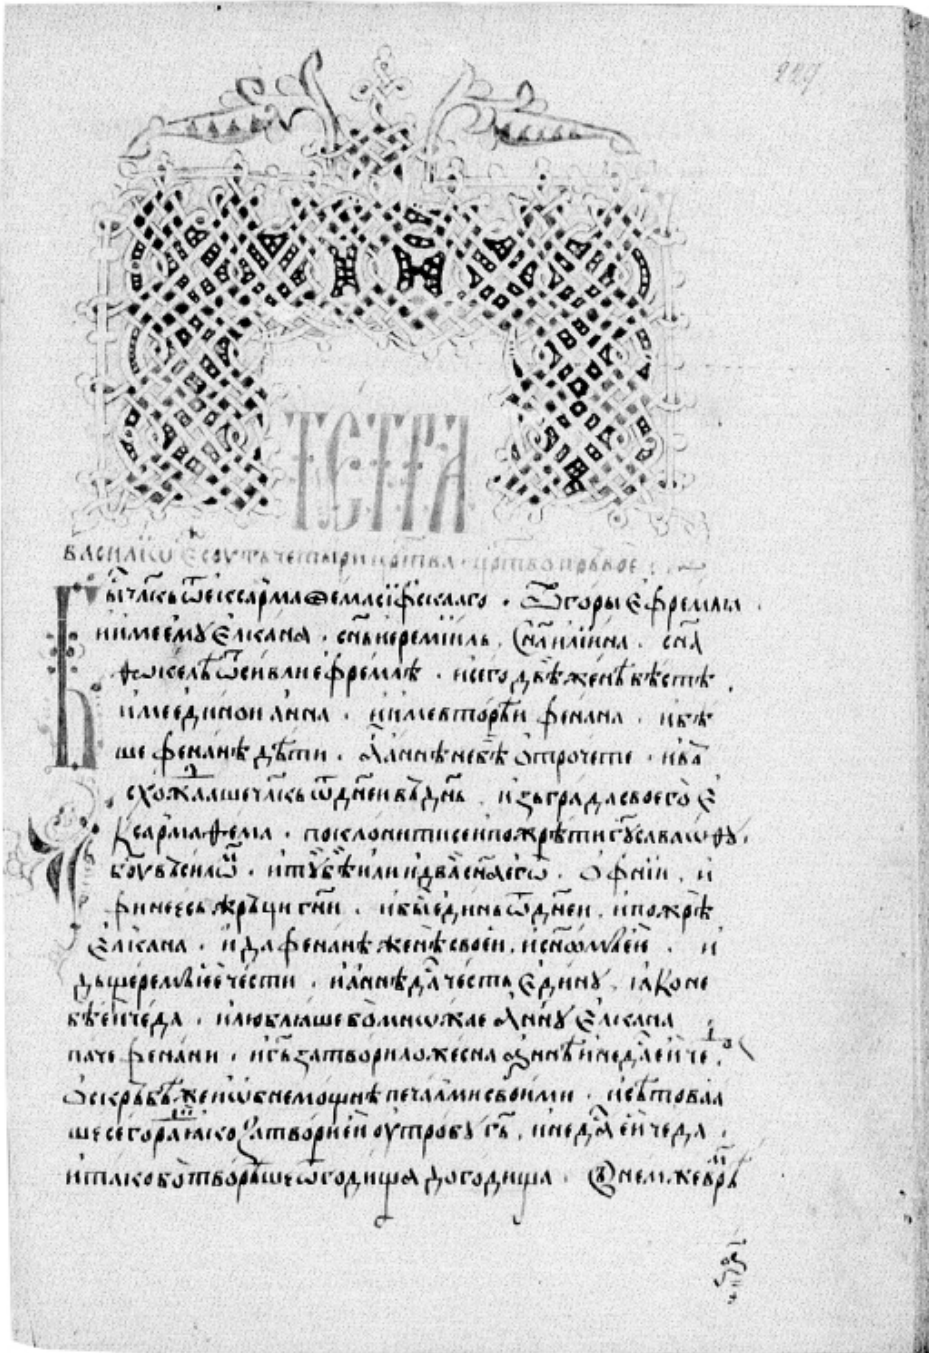 229
ТЕТРА
василїѡ Єсоуть четыри црⷭ҇тва · црⷭ҇тво прьвое
Бы́ чл҃кь ѿ еіксарма ѳема сїфскааго · Ѿ горы Єфремлѧ
и҆ име е҆мꙋ Єлкана · сн҃ь иеремїиль, Сн҃а илїина · сн҃а
ѿсивли ефремлѣ · и сего двѣ женѣ бѣстѣ
име единои анна · и҆ име вторѣи фенана · и бѣ
ше фенанѣ дѣти · А҆ аннѣ не бѣ отрочете · и вь
схождаше чл҃кь ѿ дн҃еи вь дн҃ь · и зь града своего Є
ксарма ѳема · поклонити се и пожрѣти гв҃ꙋ саваѡѳꙋ,
бг҃оу вь силѡⷨ · и тꙋ бѣ или и два сн҃а его · Офнїи, и
финеесь жрьци гн҃и · и бы́ единь ѿ дн҃еи, и пожрѣ
Єлкана · и да фенанѣ женѣ своеи, и сн҃ѡмь еѥ · и
дьщеремь еѥ чести · и аннѣ да честь Єдинꙋ, ꙗко не
бѣ еи чеда · и люблꙗше бо мнѡжае Аннꙋ Єлкана
паче фенани · и гь҃ затвори ложесна аннѣ и не да еи че,
Оскрьблѣ же ю҆ печалми своими · и сѣтоваа
ше сего ради ꙗко Затвори еи оутробꙋ гь҃, и не да еи чеда ·
и тако бо твораше ѿ годища до годища ·